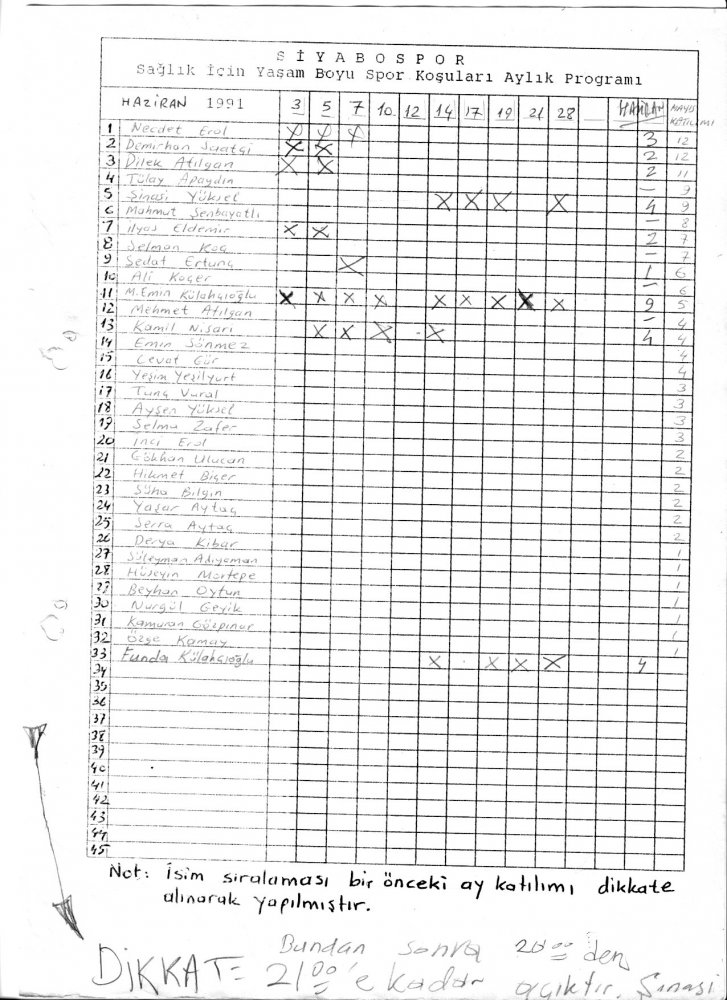 SİYABOSPOR
Sağlık İçin Yaşam Boyu Spor Koşuları Aylık Programı
HAZİRAN 1991 3 5 7 10 12 14 17 19 21 28 HAZİRAN MAYIS KATILIMI
1 Necdet Erol X X X 3 12
2 Demirhan Saatçi X X 2 12
3 Dilek Atılgan X X 2 11
4 Tülay Apaydın — 9
5 Şinasi Yüksel X X X X 4 9
6 Mahmut Şenbayatlı — 8
7 İlyas Eldemir X X 2 7
8 Selman Koç — 7
9 Sedat Ertunç X 1 6
10 Ali Koçer — 6
11 M.Emin Külahçıoğlu X X X X X X X X X 9 5
12 Mehmet Atılgan — 4
13 Kamil Nisari X X X X 4 4
14 Emin Sönmez 4
15 Cevat Gür 4
16 Yeşim Yeşilyurt 3
17 Tunç Vural 3
18 Ayşen Yüksel 3
19 Selma Zafer 3
20 İnci Erol 2
21 Gökhan Ulucan 2
22 Hikmet Biçer 2
23 Süha Bilgin 2
24 Yaşar Aytaç 2
25 Serra Aytaç 2
26 Derya Kibar 1
27 Süleyman Adıyaman 1
28 Hüseyin Mortepe 1
29 Beyhan Oytun 1
30 Nurgül Geyik 1
31 Kamuran Gözpınar 1
32 Özge Kamay 1
33 Funda Külahçıoğlu X X X X 4
34
35
36
37
38
39
40
41
42
43
44
45
Not: İsim sıralaması bir önceki ay katılımı dikkate
alınarak yapılmıştır.
DİKKAT= Bundan sonra 20 00 den
21 00'e kadar açıktır. Şinasi